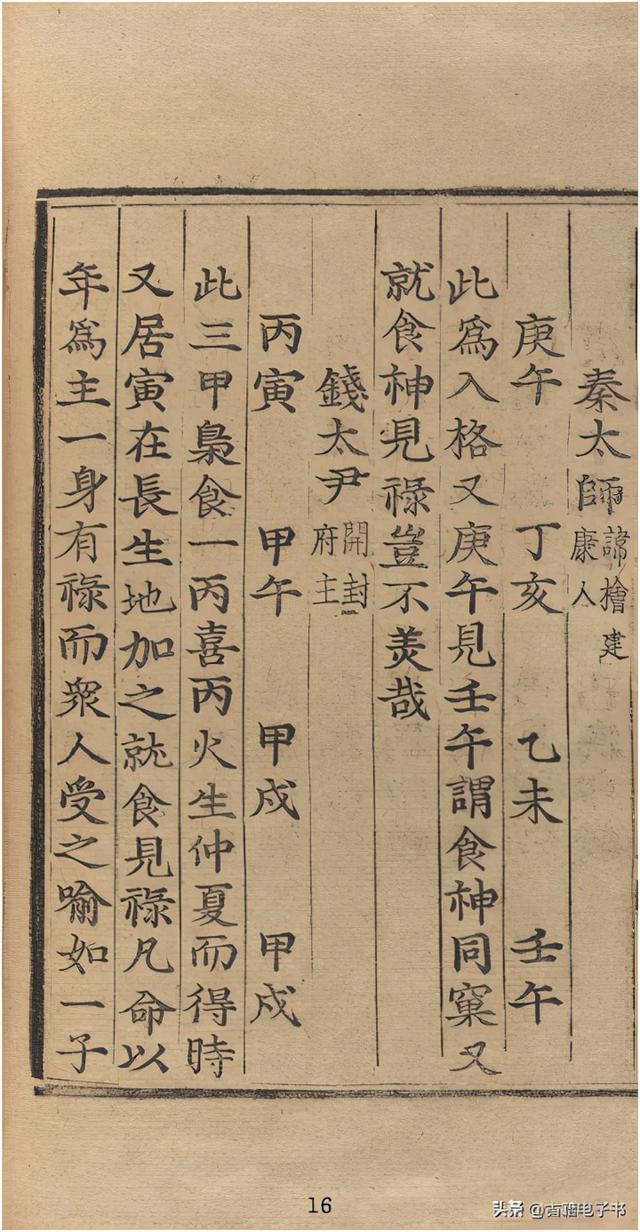 秦太師諱檜建康人
庚午 丁亥 乙未 壬午
此爲入格又庚午見壬午謂食神同窠又
就食神見祿豈不羙哉
錢太尹開封府主
丙寅 甲午 甲戍 甲戍
此三甲梟食一丙喜丙火生仲夏而得時
又居寅在長生地加之就食見祿凡命以
年爲主一身有祿而衆人受之喻如一子
16
头条 @古籍电子书